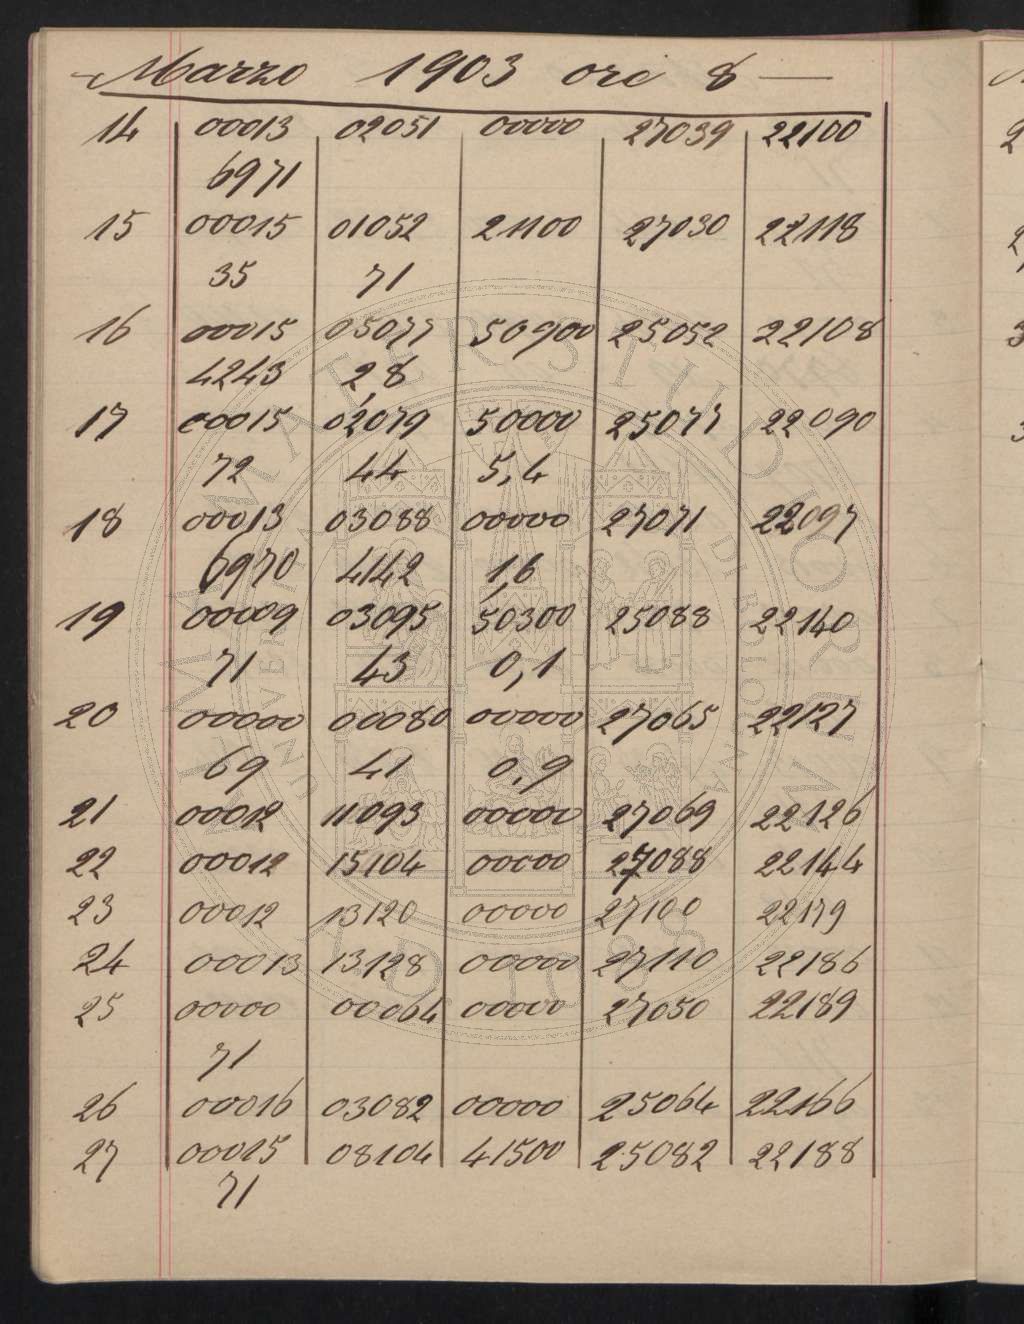 Marzo 1903 ore 8
14 00013 02051 00000 27039 22100
6971
15 00015 01052 21100 27030 22118
35 71
16 00015 05077 50900 25052 22108
4243 2,8
17 00015 02079 50000 25077 22090
72 44 5,4
18 00013 03088 00000 27071 22097
6970 4142 1,6
19 00009 03095 50300 25088 22140
71 43 0,1
20 00000 00080 00000 27065 22127
69 41 0,9
21 00012 11093 00000 27069 22126
22 00012 15104 00000 27088 22144
23 00012 13120 00000 27100 22179
24 00013 13128 00000 27110 22186
25 00000 00064 00000 27050 22189
71
26 00016 03082 00000 25064 22166
27 00015 08104 41500 25082 22188
71
ALMA MATER STUDIORUM
A.D. 1088